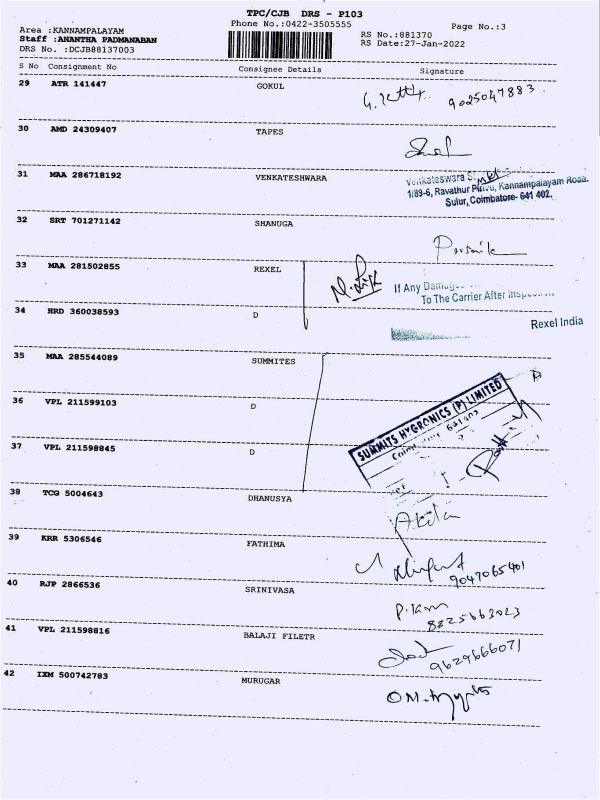 TPC/CJB DRS - P103
Phone No.:0422-3505555
Page No.:3
Area :KANNAMPALAYAM
Staff :ANANTHA PADMANABAN
DRS No. :DCJB88137003
RS No.:881370
RS Date:27-Jan-2022
S No Consignment No Consignee Details Signature
29 ATR 141447 GOKUL
9025047883
30 AMD 24309407 TAPES
31 MAA 286718192 VENKATESHWARA
Venkateswara
1/89-6, Ravathur Pirivu, Kannampalayam Road.
Sulur, Coimbatore- 641 402.
32 SRT 701271142 SHANUGA
33 MAA 281502855 REXEL
If Any Damage
To The Carrier After Inspection
34 HRD 360038593 D
Rexel India
35 MAA 285544089 SUMMITES
36 VPL 211599103 D
SUMMITS HYGRONICS (P) LIMITED
37 VPL 211598845 D
38 TCG 5004643 DHANUSYA
Akila
39 KRR 5306546 FATHIMA
9047065401
40 RJP 2866536 SRINIVASA
8825663023
41 VPL 211598816 BALAJI FILETR
9629666071
42 IXM 500742783 MURUGAR